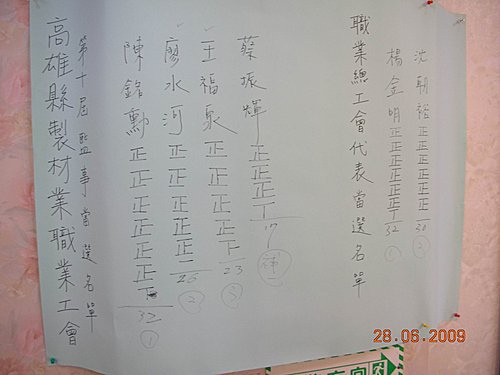 高雄縣製材業職業工會
第十屆監事當選名單
陳銘勳 正正正正正正 32 ①
廖水河 正正正正正 25 ②
王福泉 正正正正下 23 ③
蔡振輝 正正正丅 17
職業總工會代表當選名單
楊金明 正正正正正正丅 32 ①
沈朝 正正正正正正 30 ②
28.06.2009